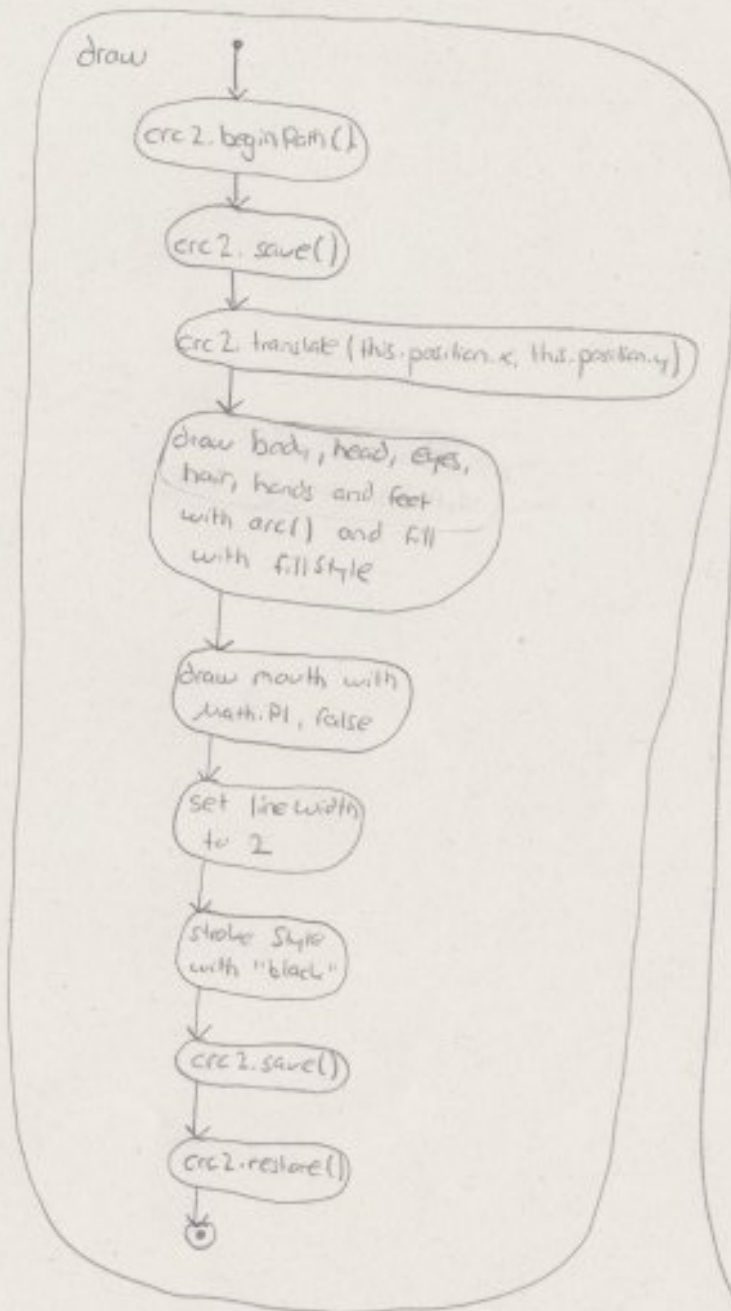 draw
crc2.beginPath()
crc2.save()
crc2.translate(this.position.x, this.position.y)
draw body, head, eyes,
hair, hands and feet
with arc() and fill
with fillStyle
draw mouth with
Math.PI, false
set linewidth
to 2
stroke Style
with "black"
crc2.save()
crc2.restore()